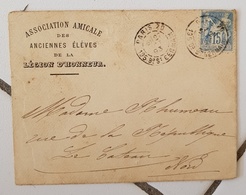 ASSOCIATION AMICALE
DES
ANCIENNES ÉLÈVES
DE LA
LÉGION D'HONNEUR.
PARIS
15
Madame
rue de la République
Le Cateau
Nord